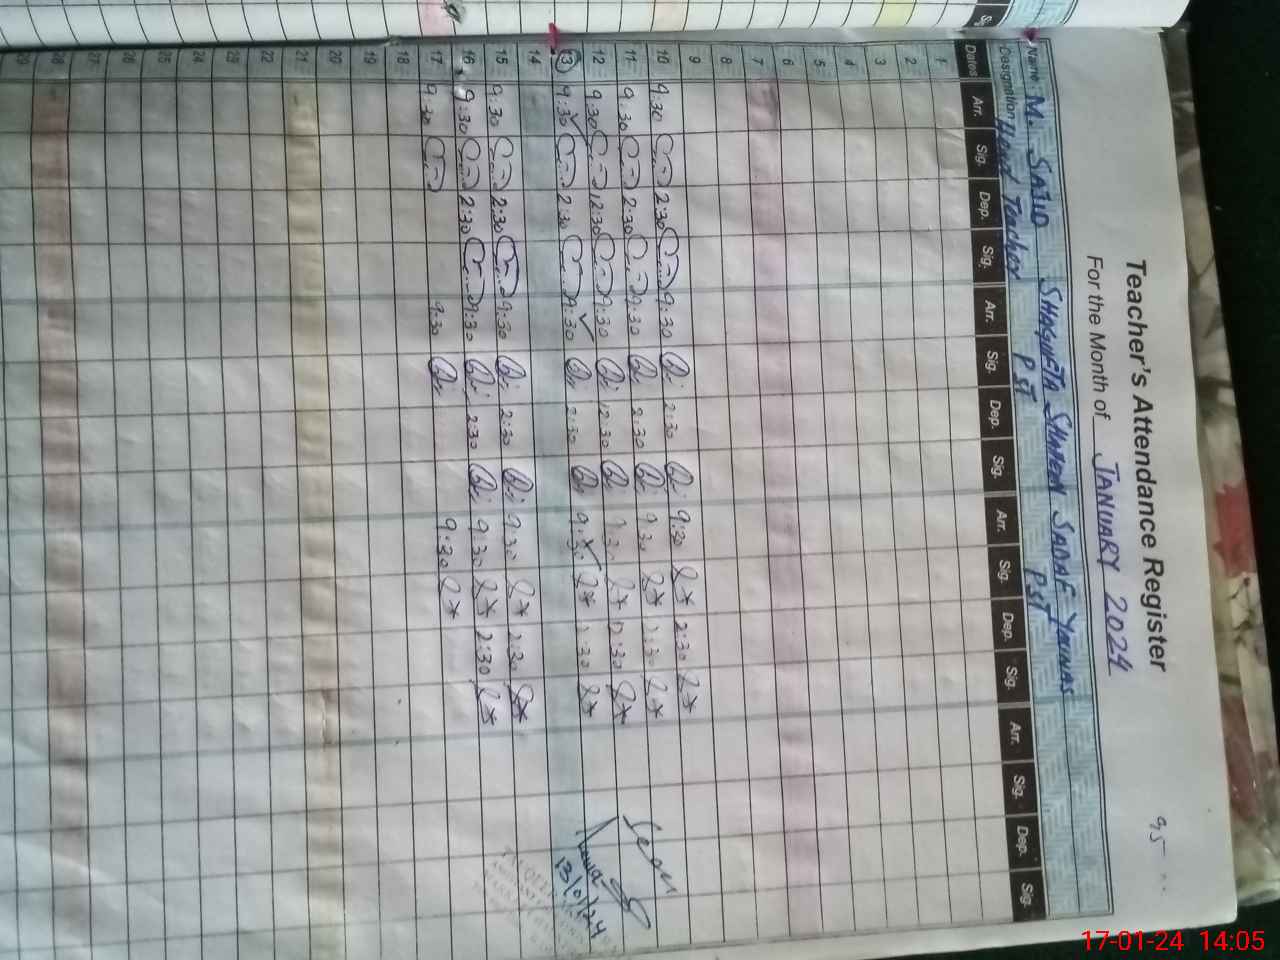 95
Teacher's Attendance Register
For the Month of JANUARY 2024
Name: M. SAJID SHAGUFTA SHAHEEN SADAF YOUNAS
Designation Head Teacher PST PST
Dates Arr. Sig. Dep. Sig. Arr. Sig. Dep. Sig. Arr. Sig. Dep. Sig. Arr. Sig. Dep. Sig.
1
2
3
4
5
6
7
8
9
10 9:30 2:30 9:30 2:30 9:30 2:30
11 9:30 2:30 9:30 2:30 9:30 2:30
12 9:30 12:30 9:30 12:30 9:30 12:30
13 9:30 2:30 9:30 2:30 9:30 2:30
13/01/24
14
15 9:30 2:30 9:30 2:30 9:30 2:30
16 9:30 2:30 9:30 2:30 9:30 2:30
17 9:30 9:30 9:30
18
19
20
21
22
23
24
25
26
27
28
29
17-01-24 14:05